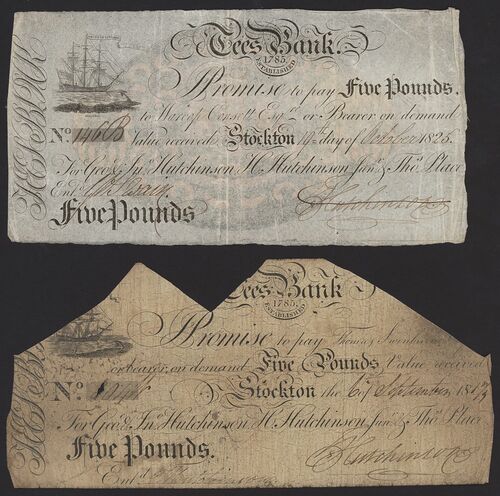 TEES BANK
Tees Bank.
1785.
ESTABLISHED
I Promise to pay Five Pounds.
to Warcop Consett Esq.r or Bearer on demand
No. 1460B Value received Stockton 14th day of October 1825.
For Geo. & Jn.o Hutchinson H. Hutchinson Jun.r & Tho.s Place
Ent.d
Five Pounds
TEES B
ees Bank
1785.
ESTABLISHED
I Promise to pay Thomas
or Bearer, on demand Five Pounds Value received
No. Stockton the 6th September 181
For Geo. & Jn.o Hutchinson H. Hutchinson Jun.r & Tho.s Place
Five Pounds.
Ent.d